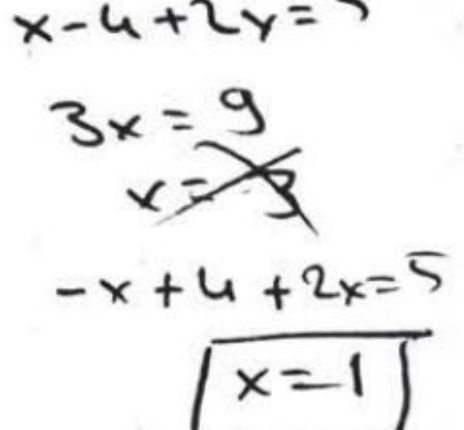 x-4+2x=
3x=9
x=3
-x+4+2x=5
x=1